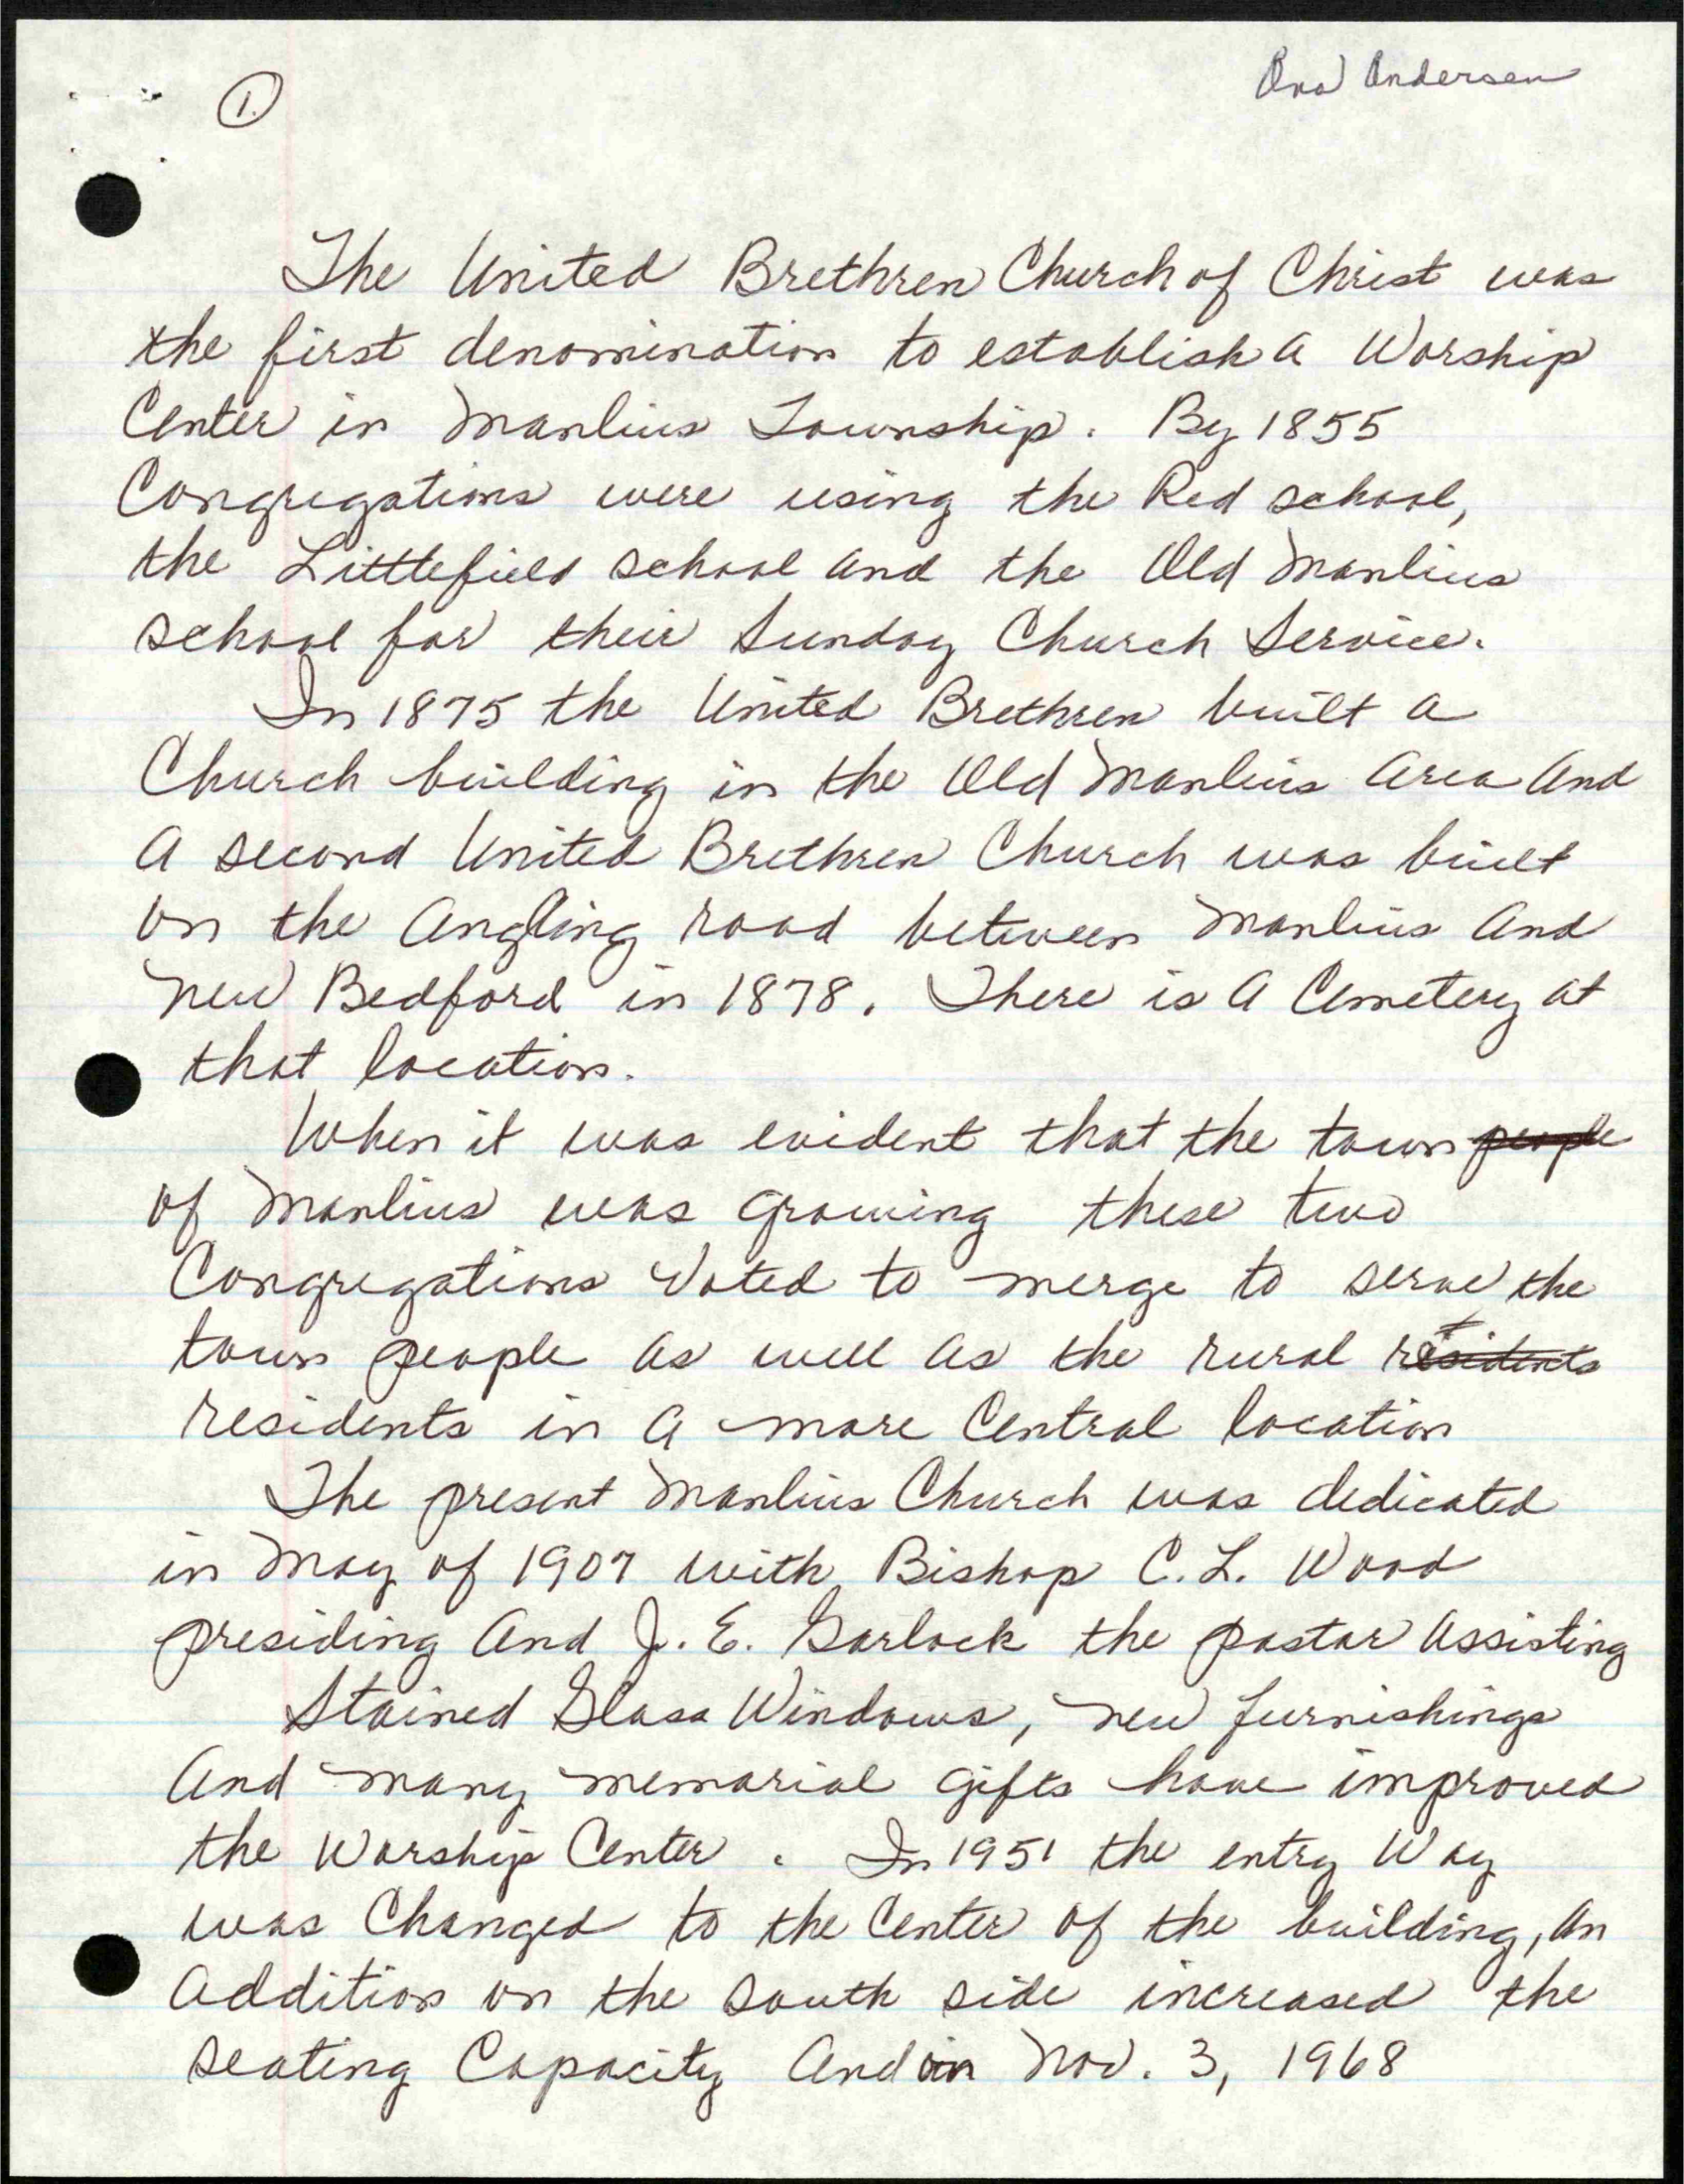 Ova Andersen
1.
The United Brethren Church of Christ was
the first denomination to establish a Worship
Center in Manlius Township. By 1855
Congregations were using the Red school,
the Littlefield school and the Old Manlius
school for their Sunday Church Service.
In 1875 the United Brethren built a
Church building in the Old Manlius Area And
A second United Brethren Church was built
on the Angling road between Manlius And
New Bedford in 1878. There is A Cemetery at
that location.
When it was evident that the town people
of Manlius was growing these two
Congregations Voted to merge to serve the
town people as well as the rural residents
residents in a more Central location
The present Manlius Church was dedicated
in May of 1907 with Bishop C. L. Wood
presiding And J. E. Garlock the pastor Assisting
Stained Glass Windows, new furnishings
And many memorial gifts have improved
the Worship Center. In 1951 the entry Way
was Changed to the Center of the building, An
Addition on the south side increased the
seating Capacity And on Nov. 3, 1968